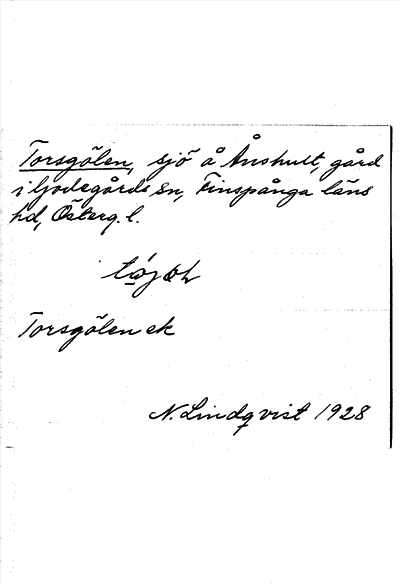 Torsgölen, sjö å Ånshult, gård
i Godegårds sn, Finspånga läns
hd, Österg. l.
Torsgölen ek
N. Lindqvist 1928